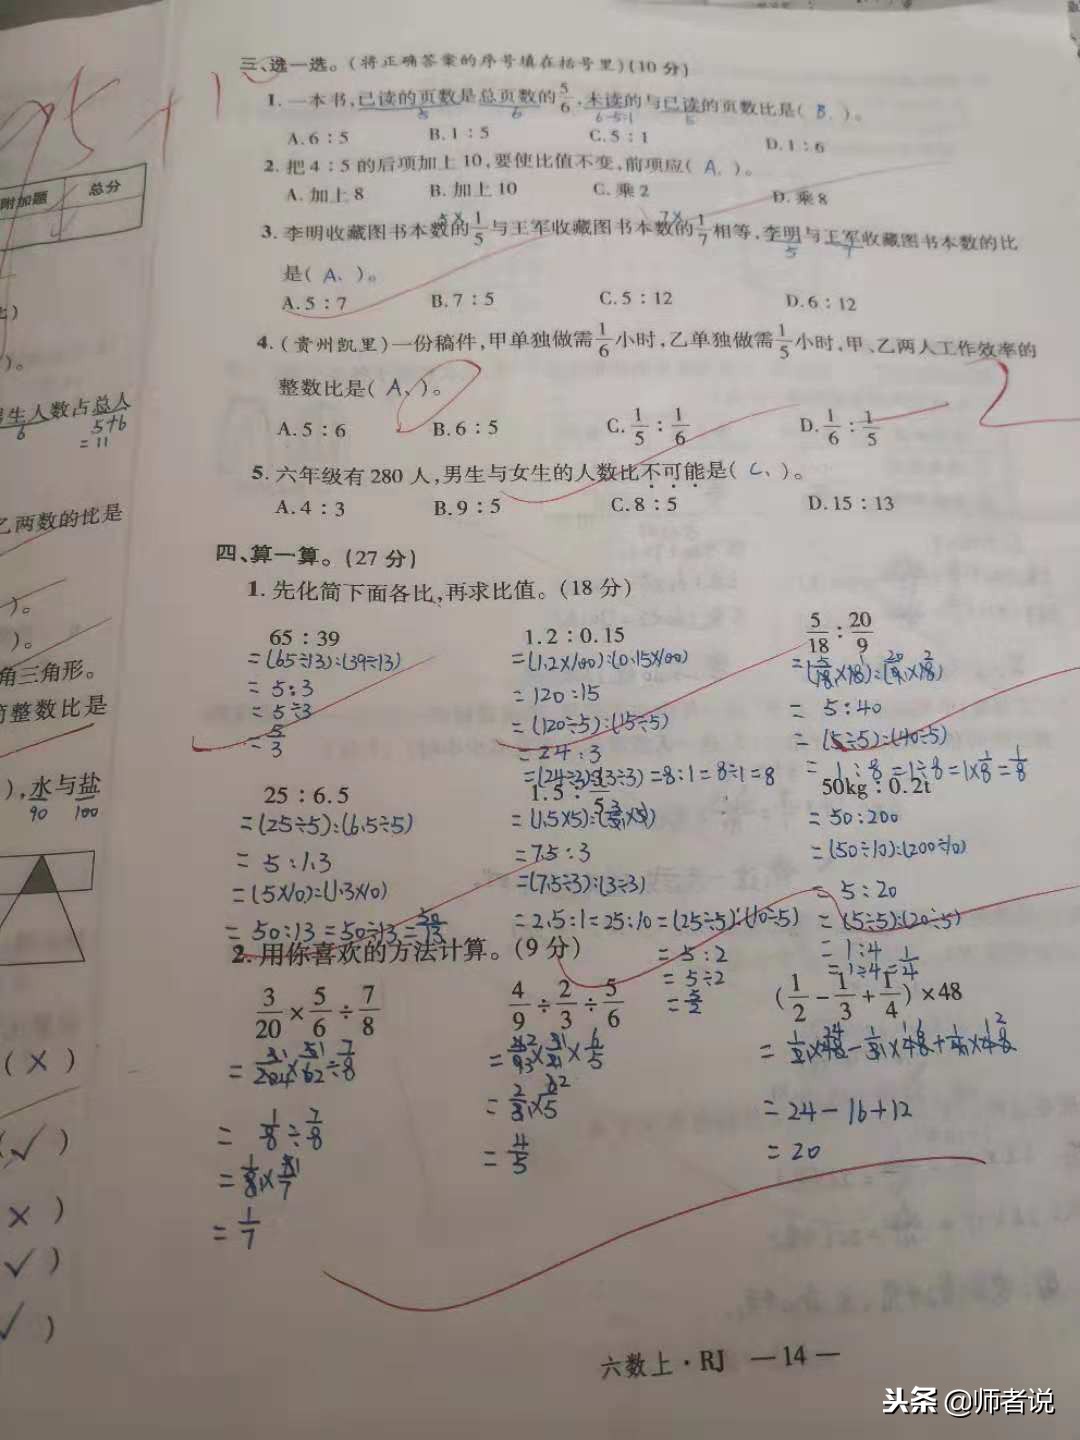 95+1
附加题 总分
三、选一选。(将正确答案的序号填在括号里)(10分)
1. 一本书,已读的页数是总页数的5/6,未读的与已读的页数比是( B、)。
5 6 6-5=1 5
A.6:5 B.1:5 C.5:1 D.1:6
2. 把4:5的后项加上10,要使比值不变,前项应( A、)。
A.加上8 B.加上10 C.乘2 D.乘8
3. 李明收藏图书本数的1/5与王军收藏图书本数的1/7相等,李明与王军收藏图书本数的比
是( A、)。
5 7
A.5:7 B.7:5 C.5:12 D.6:12
4.(贵州凯里)一份稿件,甲单独做需1/6小时,乙单独做需1/5小时,甲、乙两人工作效率的
整数比是( A、)。
2
A.5:6 B.6:5 C.1/5:1/6 D.1/6:1/5
5. 六年级有280人,男生与女生的人数比不可能是( C、)。
A.4:3 B.9:5 C.8:5 D.15:13
四、算一算。(27分)
1. 先化简下面各比,再求比值。(18分)
65:39
=(65÷13):(39÷13)
=5:3
=5÷3
=5/3
1.2:0.15
=(1.2×100):(0.15×100)
=120:15
=(120÷5):(15÷5)
=24:3
=(24÷3):(3÷3)=8:1=8÷1=8
5/18:20/9
=(5/18×18):(20/9×18)
=5:40
=(5÷5):(40÷5)
=1:8=1÷8=1×1/8=1/8
25:6.5
=(25÷5):(6.5÷5)
=5:1.3
=(5×10):(1.3×10)
=50:13=50÷13=50/13
1.5:3/5
=(1.5×5):(3/5×5)
=7.5:3
=(7.5÷3):(3÷3)
=2.5:1=25:10=(25÷5):(10÷5)
=5:2
=5÷2
=5/2
50kg:0.2t
=50:200
=(50÷10):(200÷10)
=5:20
=(5÷5):(20÷5)
=1:4
=1÷4=1/4
2. 用你喜欢的方法计算。(9分)
3/20×5/6÷7/8
=3/20×5/6÷7/8
=1/8÷7/8
=1/8×8/7
=1/7
4/9÷2/3÷5/6
=4/9×3/2×6/5
=2/3×6/5
=4/5
(1/2-1/3+1/4)×48
=1/2×48-1/3×48+1/4×48
=24-16+12
=20
六数上·RJ —14—
生人数占总人
6 5+6
=11
乙两数的比是
)。
)。
角三角形。
简整数比是
),水与盐
90 100
(×)
(√)
×)
√)
√)
头条 @师者说